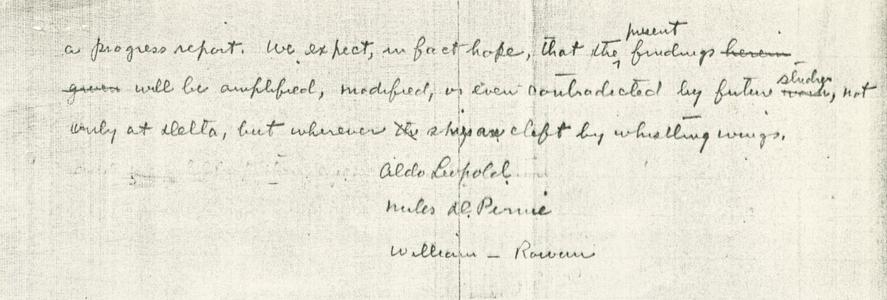 present
a progress report. We expect, in fact hope, that the findings herein
study,
given will be amplified, modified, or even contradicted by future work, not
only at Delta, but wherever the skies are cleft by whistling wings.
Aldo Leopold
Miles D. Pirnie
William Rowan